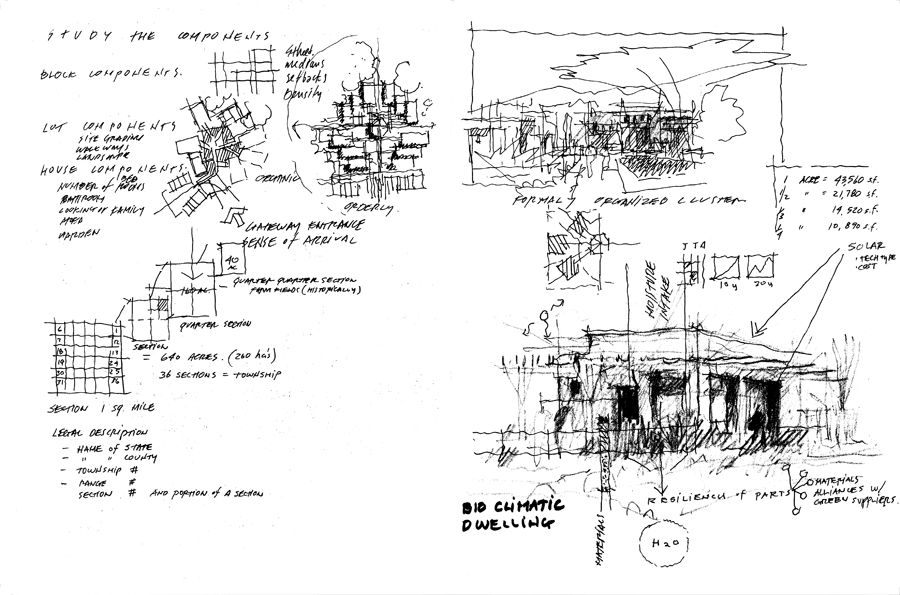 STUDY THE COMPONENTS
BLOCK COMPONENTS.
medians
setbacks
Density
LOT COMPONENTS
SITE GRADING
WALKWAYS
LANDSCAPE
HOUSE COMPONENTS.
NUMBER of ROOMS
BATHROOM
COOKING OF FAMILY
AREA
GARDEN
ORGANIC
ORDERLY.
GATEWAY ENTRANCE
SENSE of ARRIVAL
40
AC
QUARTER-QUARTER SECTION
FARM FIELDS (HISTORICALLY)
160 AC
QUARTER SECTION
SECTION
= 640 ACRES. (260 ha's)
36 SECTIONS = TOWNSHIP
6 1
7 12
18 13
19 24
30 25
31 36
SECTION 1 SQ. MILE
LEGAL DESCRIPTION
- NAME of STATE
- " " COUNTY
- TOWNSHIP #
- RANGE #
SECTION # AND PORTION OF A SECTION
FORMALLY ORGANIZED CLUSTER
1 ACRE = 43,560 s.f.
1/2 " = 21,780 s.f.
1/3 " 14,520 s.f.
1/4 " 10,890 s.f.
SOLAR
• TECH TYPE
• COST
INTAKE
10 y
20 y
BIO CLIMATIC
DWELLING
MATERIALS
RESILIENCY of PARTS
MATERIALS
ALLIANCES W/
GREEN SUPPLIERS.
H2O